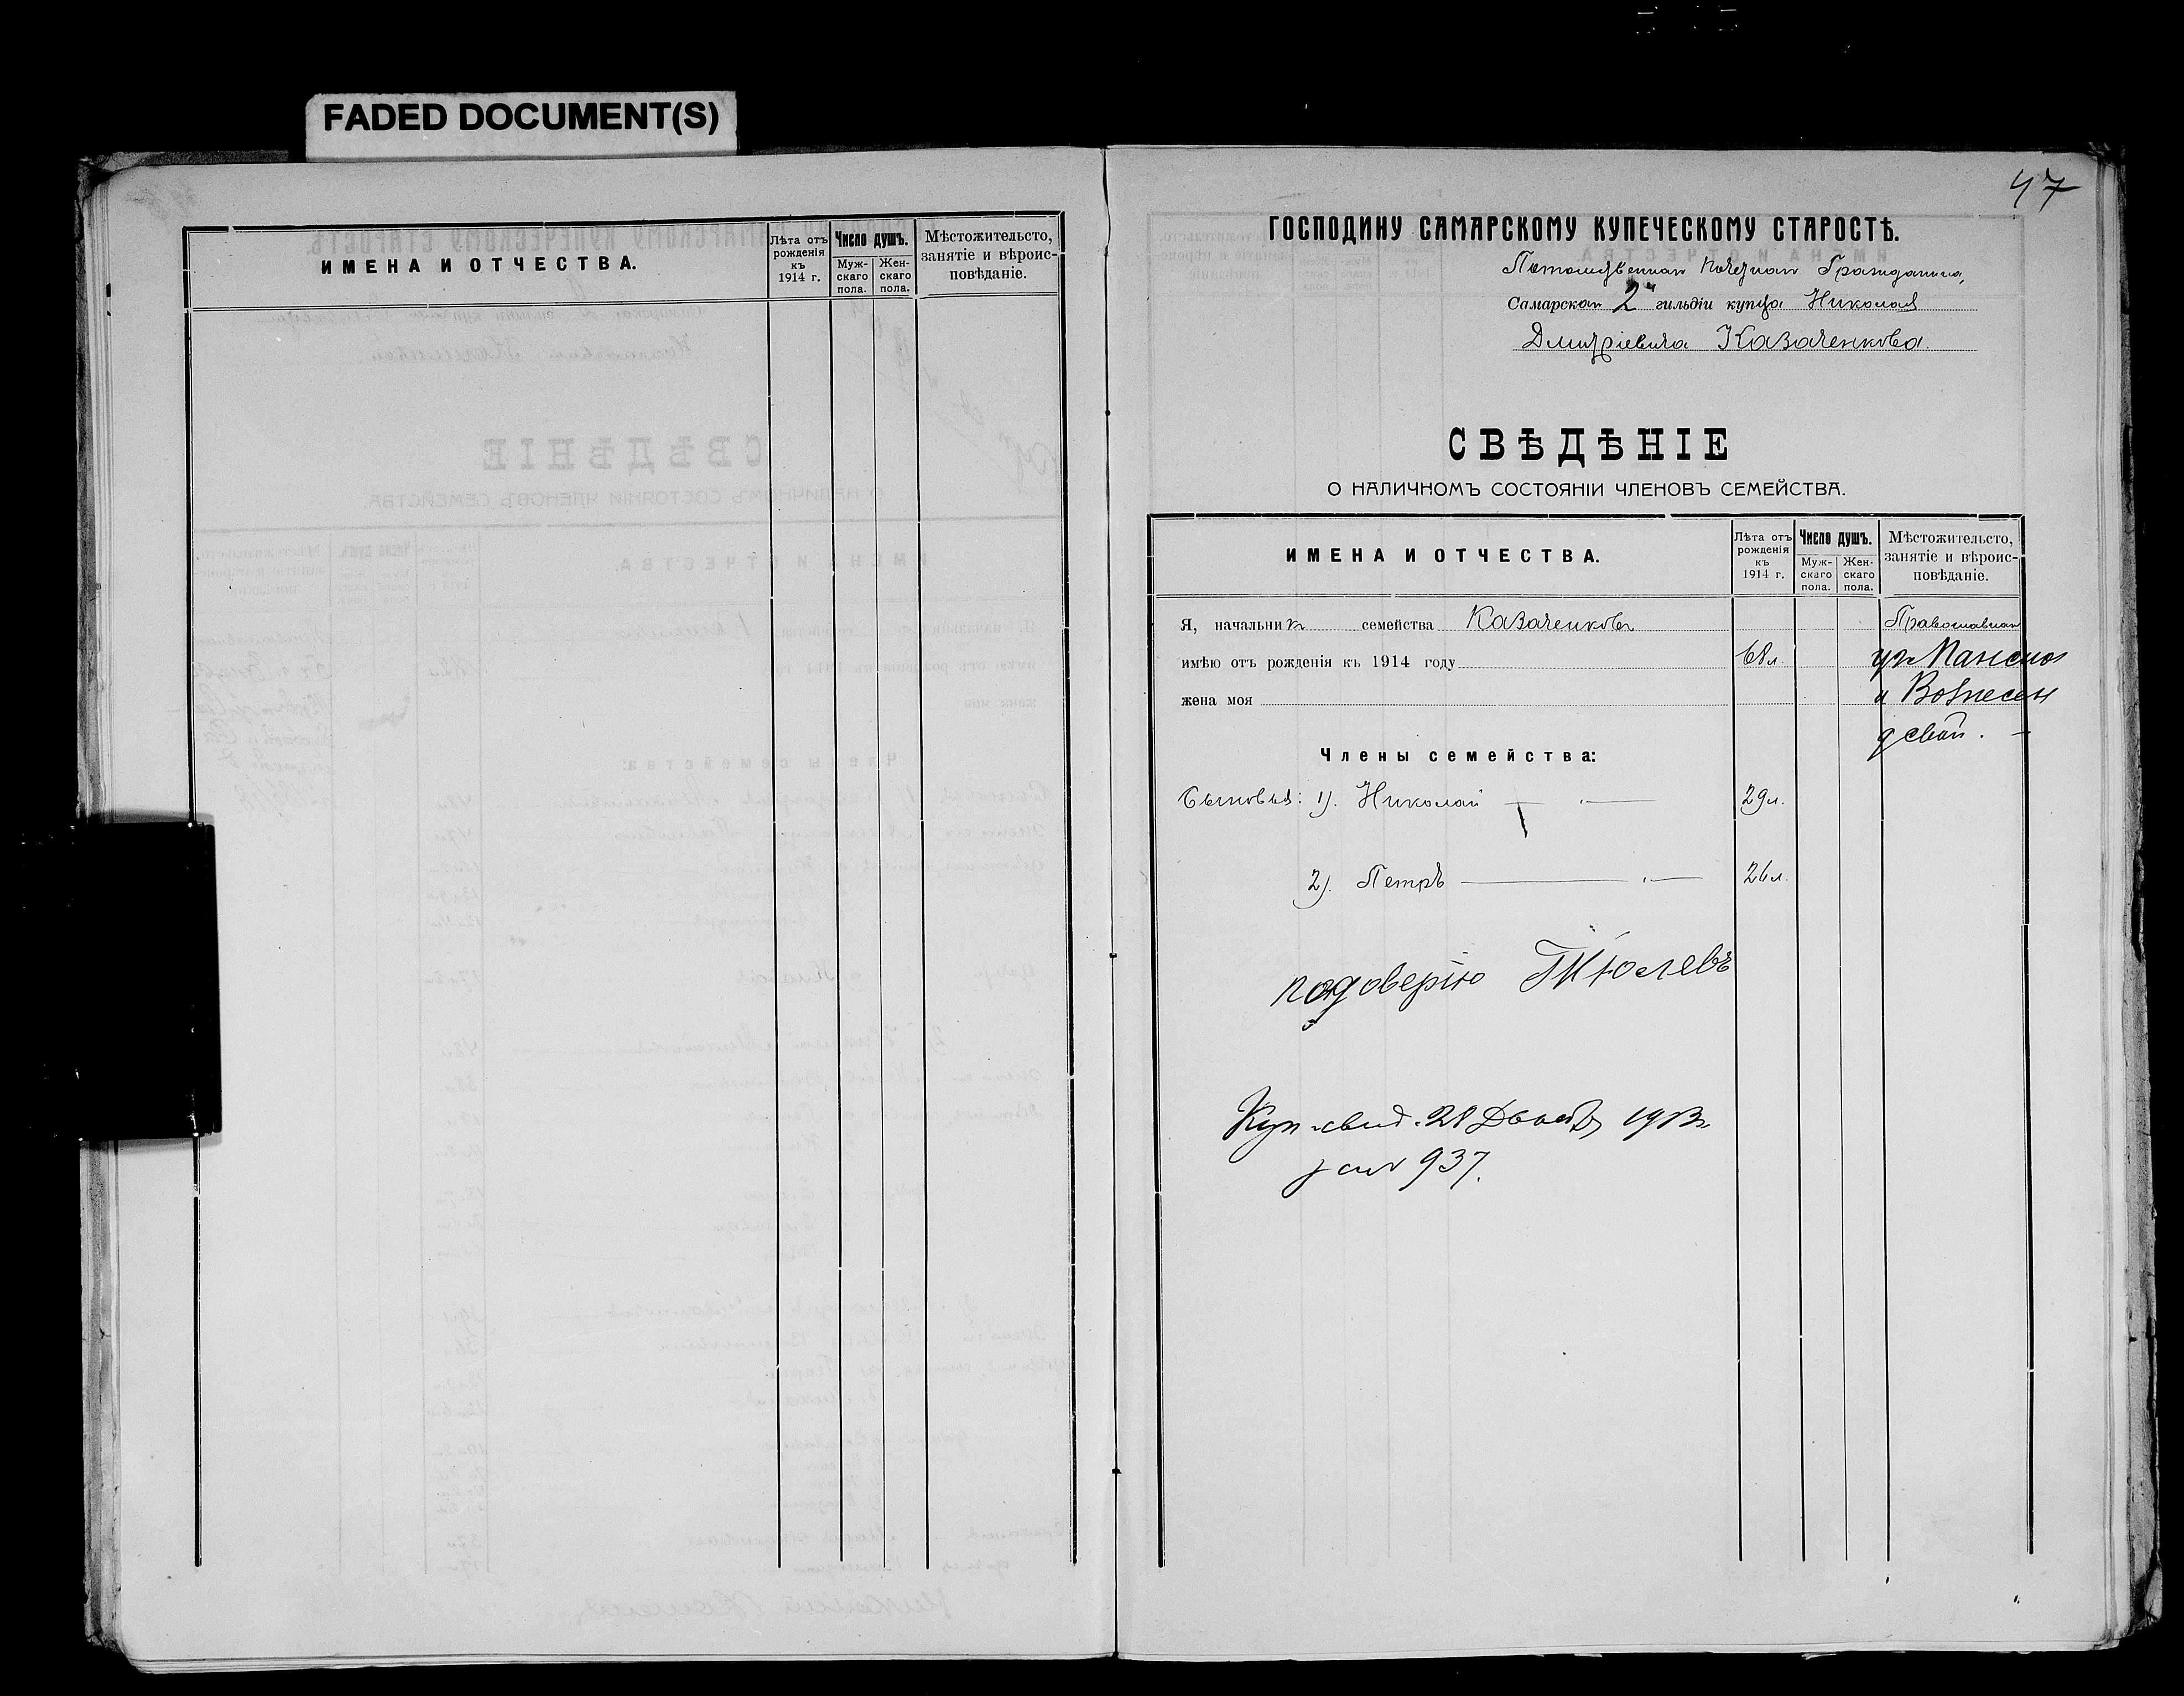 FADED DOCUMENT(S)
ИМЕНА И ОТЧЕСТВА.
Лѣта отъ рожденія къ 1914 г.
Число душъ.
Муж-скаго пола.
Жен-скаго пола.
Мѣстожительсто, занятіе и вѣроис-повѣданіе.
47
ГОСПОДИНУ САМАРСКОМУ КУПЕЧЕСКОМУ СТАРОСТѢ.
Потомственнаго Почетнаго Гражданина,
Самарскаго 2й гильдіи купца Николая
Дмитріевича Казаченкова.
СВѢДѢНІЕ
О НАЛИЧНОМЪ СОСТОЯНІИ ЧЛЕНОВЪ СЕМЕЙСТВА.
ИМЕНА И ОТЧЕСТВА.
Лѣта отъ рожденія къ 1914 г.
Число душъ.
Муж-скаго пола.
Жен-скаго пола.
Мѣстожительсто, занятіе и вѣроис-повѣданіе.
Я, начальникъ семейства Казаченковъ Православнаго
имѣю отъ рожденія къ 1914 году 68 л. уг. Панской
жена моя и Вознесен
ской.
Члены семейства:
Сыновья: 1). Николай 29 л.
2). Петръ 26 л.
по доверiю
Куп. свид. 28 1913 г.
за № 937.